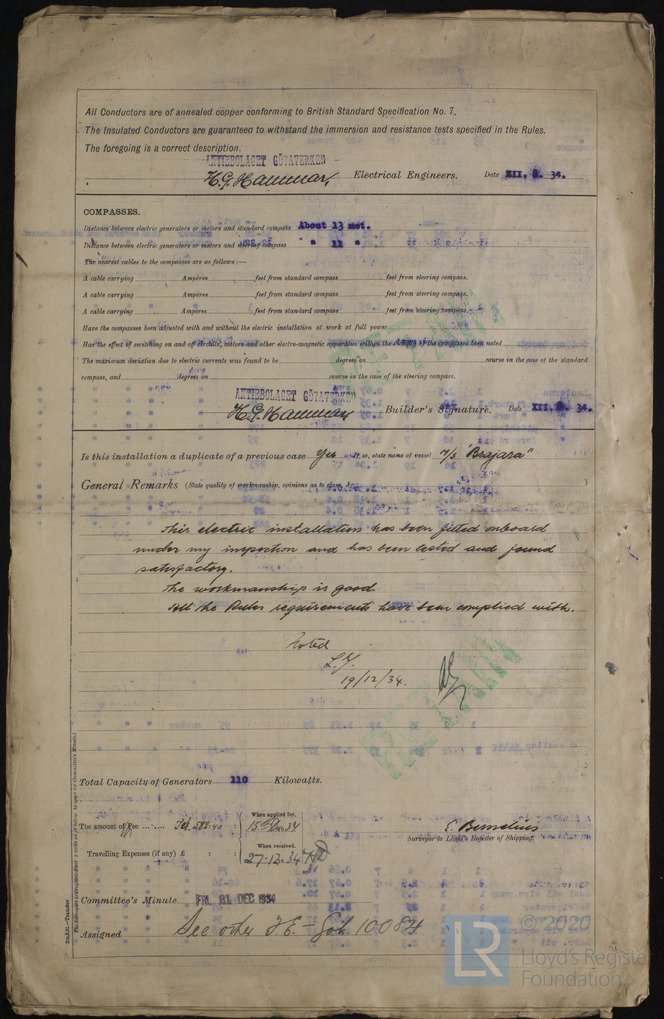 All Conductors are of annealed copper conforming to British Standard Specification No. 7.
The Insulated Conductors are guaranteed to withstand the immersion and resistance tests specified in the Rules.
The foregoing is a correct description.
AKTIEBOLAGET GÖTAVERKEN
H.G. Hammar, Electrical Engineers. Date XII. 8. 34.
COMPASSES.
Distance between electric generators or motors and standard compass About 13 met.
Distance between electric generators or motors and steering compass " 11 "
The nearest cables to the compasses are as follows:—
A cable carrying Ampères feet from standard compass feet from steering compass.
A cable carrying Ampères feet from standard compass feet from steering compass.
A cable carrying Ampères feet from standard compass feet from steering compass.
Have the compasses been adjusted with and without the electric installation at work at full power
Has the effect of switching on and off circuits, motors and other electro-magnetic apparatus within the of the compasses been noted
The maximum deviation due to electric currents was found to be degrees on course in the case of the standard
compass, and degrees on course in the case of the steering compass.
AKTIEBOLAGET GÖTAVERKEN
H.G. Hammar Builder's Signature. Date XII. 34.
Is this installation a duplicate of a previous case Yes If so, state name of vessel M/S "Brajara"
General Remarks (State quality of workmanship, opinions as to class, &c.)
This electric installation has been fitted onboard
under my inspection and has been tested and found
satisfactory.
The workmanship is good.
All the Rules requirements have been complied with.
Noted
L.Y.
19/12/34.
Total Capacity of Generators 110 Kilowatts.
The amount of Fee
When applied for,
34
Surveyor to Lloyd's Register of Shipping.
Travelling Expenses (if any) £
When received,
27.12.34
Committee's Minute FRI. 21 DEC 1934
Assigned See other F.E. - Got. 10084
LR
© 2020
Lloyd's Register
Foundation